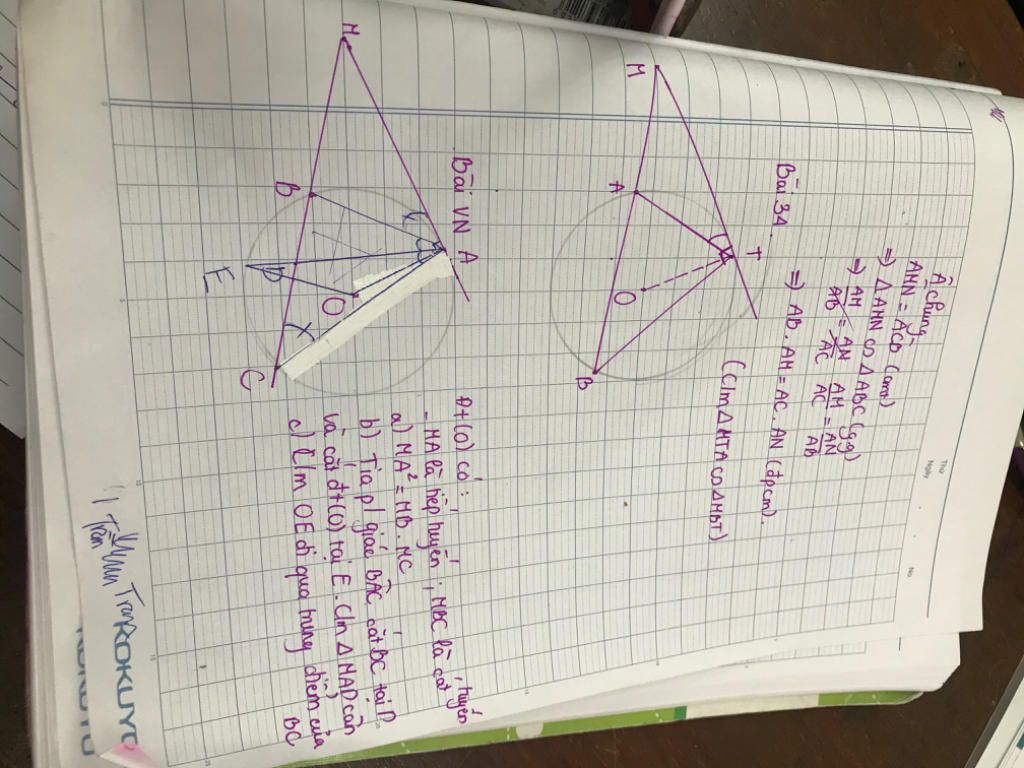 Thứ
Ngày
No
Â chung
AMN = ACB (cmt)
=> ΔAMN ∽ ΔABC (g.g)
=> AM/AB = AN/AC AM/AC = AN/AB
=> AB . AM = AC . AN (đpcm).
Bài 34
(C/m ΔMTA ∽ ΔMBT)
M
A
T
O
B
Bài VN
Đt (O) có :
- MA là tiếp tuyến ; MBC là cát tuyến
a) MA² = MB . MC
b) Tia p/giác BÂC cắt BC tại D
và cắt đt (O) tại E. C/m ΔMAD cân
c) C/m OE đi qua trung điểm của
BC
M
A
B
E
D
O
C
Trần
Trần
KOKUYO